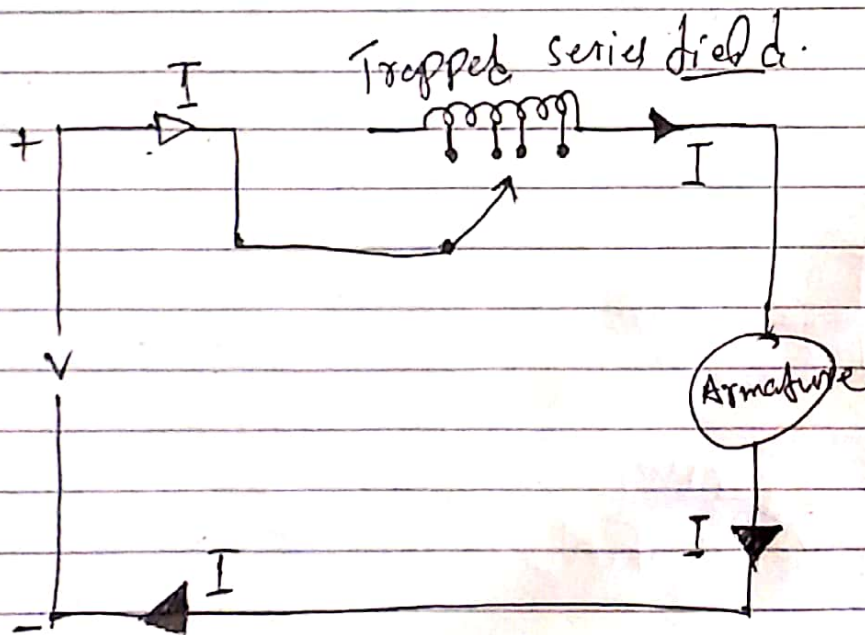 Trapped series field.
I
+
I
V
Armature
I
I
-